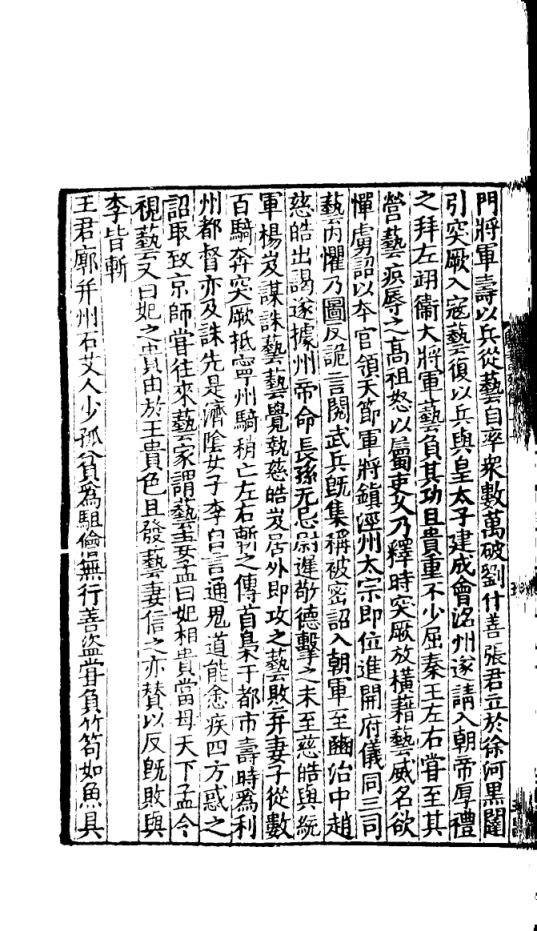 門將軍壽以兵從藝自率衆數萬破劉什善張君立於徐河黑闥
引突厥入寇藝復以兵與皇太子建成會洺州遂請入朝帝厚禮
之拜左翊衞大將軍藝負其功且貴重不少屈秦王左右甞至其
營藝疾辱之高祖怒以屬吏久乃釋時突厥放橫藉藝威名欲
憚虜詔以本官領天節軍將鎮涇州太宗即位進開府儀同三司
藝內懼乃圖反詭言閱武兵旣集稱被密詔入朝軍至豳治中趙
慈皓出謁遂據州帝命長孫无忌尉遲敬德擊之未至慈皓與統
軍楊岌謀誅藝藝覺執慈皓岌居外即攻之藝敗弃妻子從數
百騎奔突厥抵寧州騎稍亡左右斬之傳首梟于都市壽時爲利
州都督亦及誅先是濟陰女子李自言通鬼道能愈疾四方惑之
詔取致京師甞往來藝家謂藝妻孟曰妃相貴當母天下孟令
視藝又曰妃之貴由於王貴色且發藝妻信之亦贊以反旣敗與
李皆斬
王君廓并州石艾人少孤貧爲駔儈無行善盜甞負竹笱如魚具